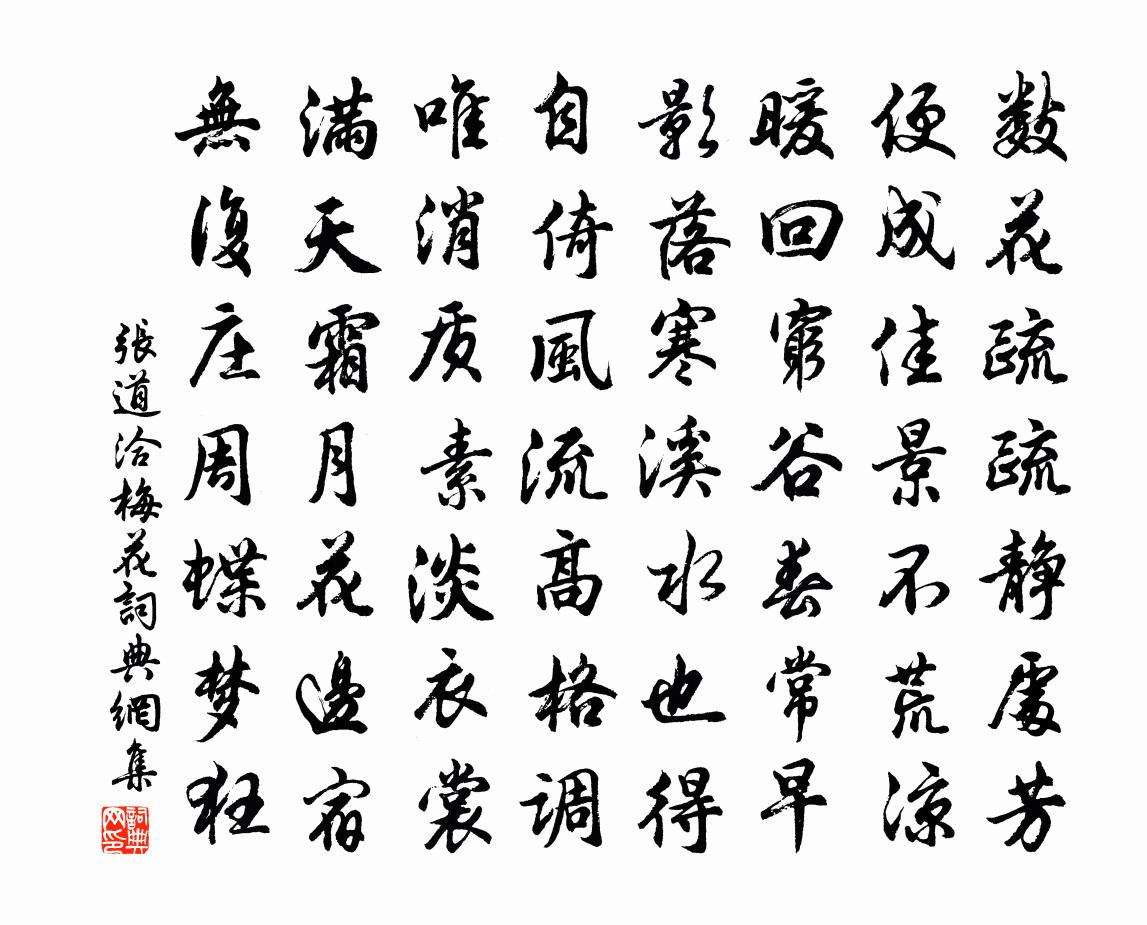 数花疏疏静處芳
便成佳景不荒凉
暖回窮谷春常早
影落寒溪水也得
自倚風流高格調
唯消质素淡衣裳
满天霜月花邊宿
無復庄周蝶梦狂
張道洽梅花詞典網集
詞典网印